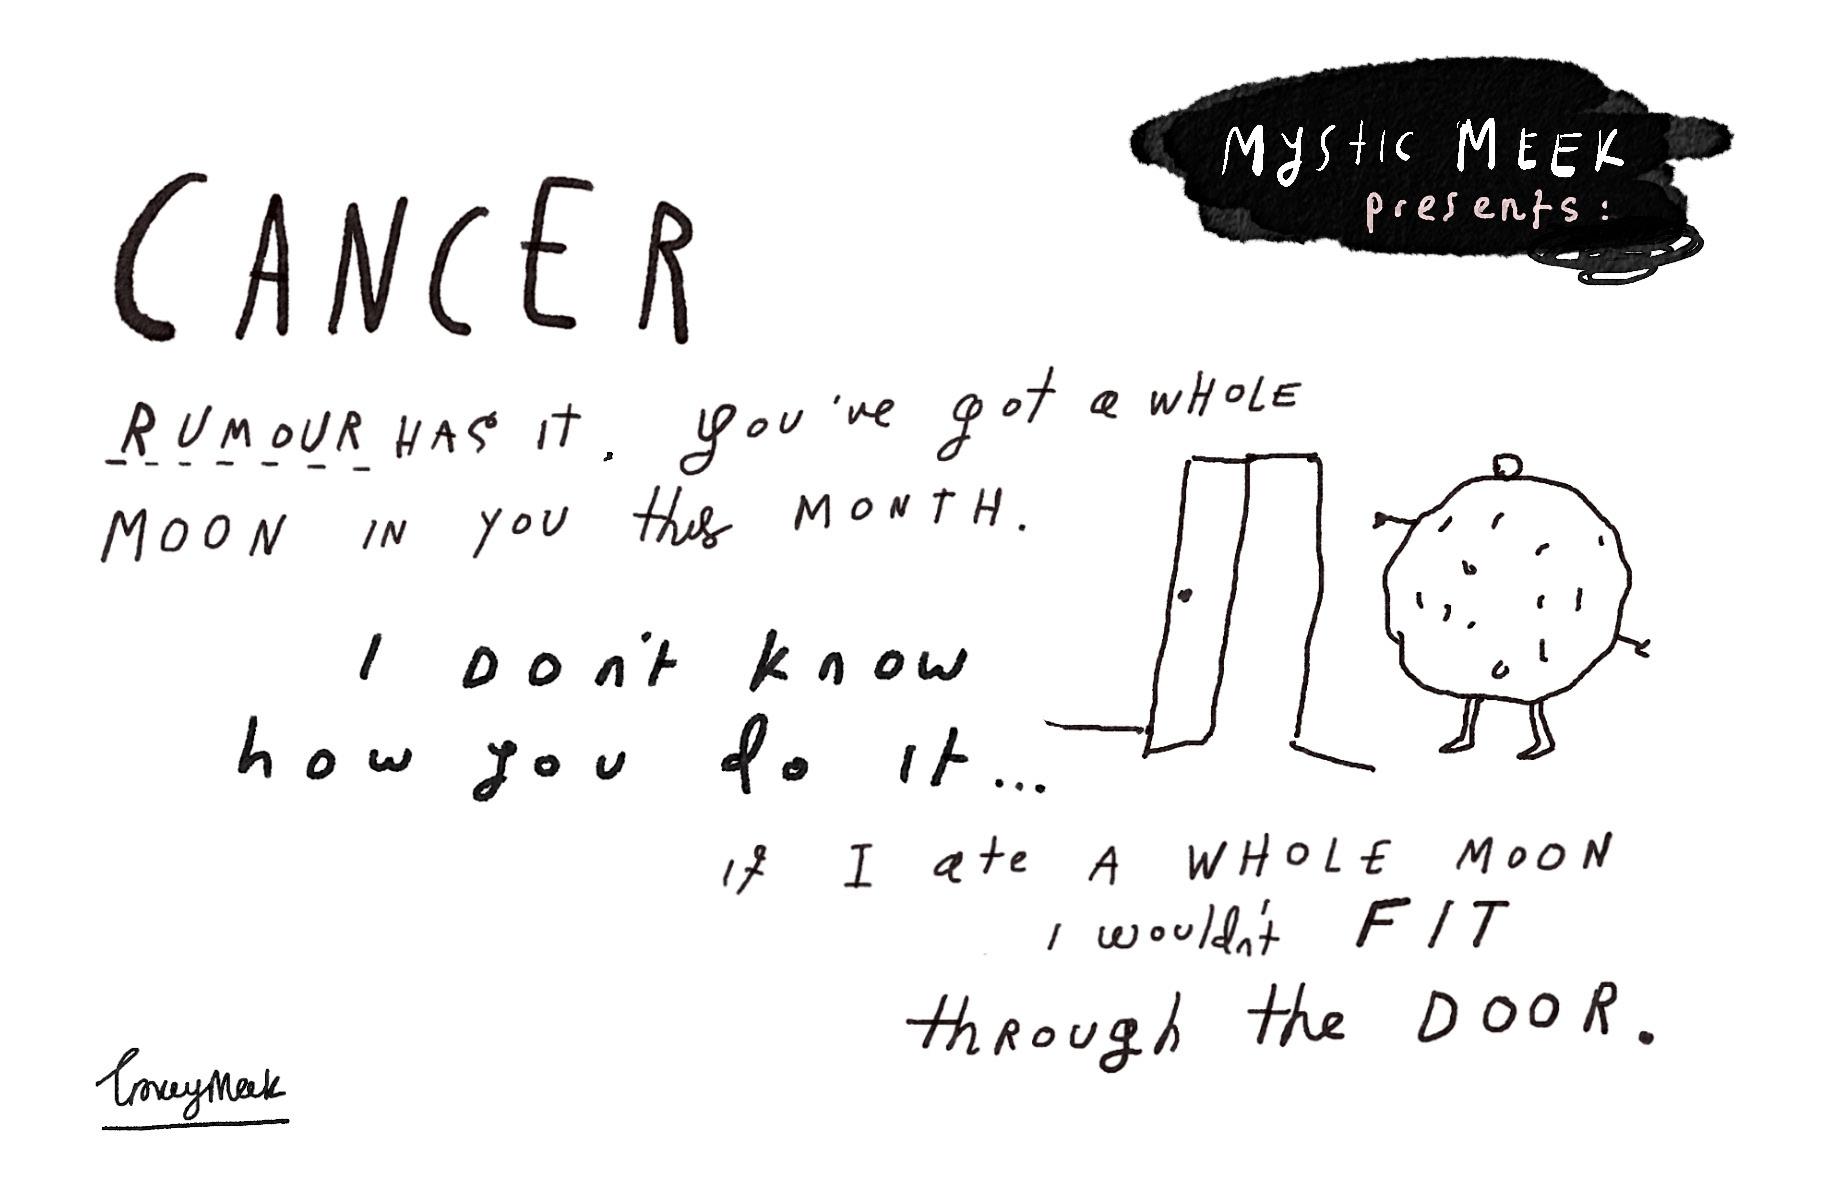 MYSTIC MEEK
presents:
CANCER
RUMOUR HAS IT. you've got a WHOLE
MOON IN YOU this MONTH.
I DON't know
how you do it...
if I ate A WHOLE MOON
I wouldn't FIT
thROUgh the DOOR.